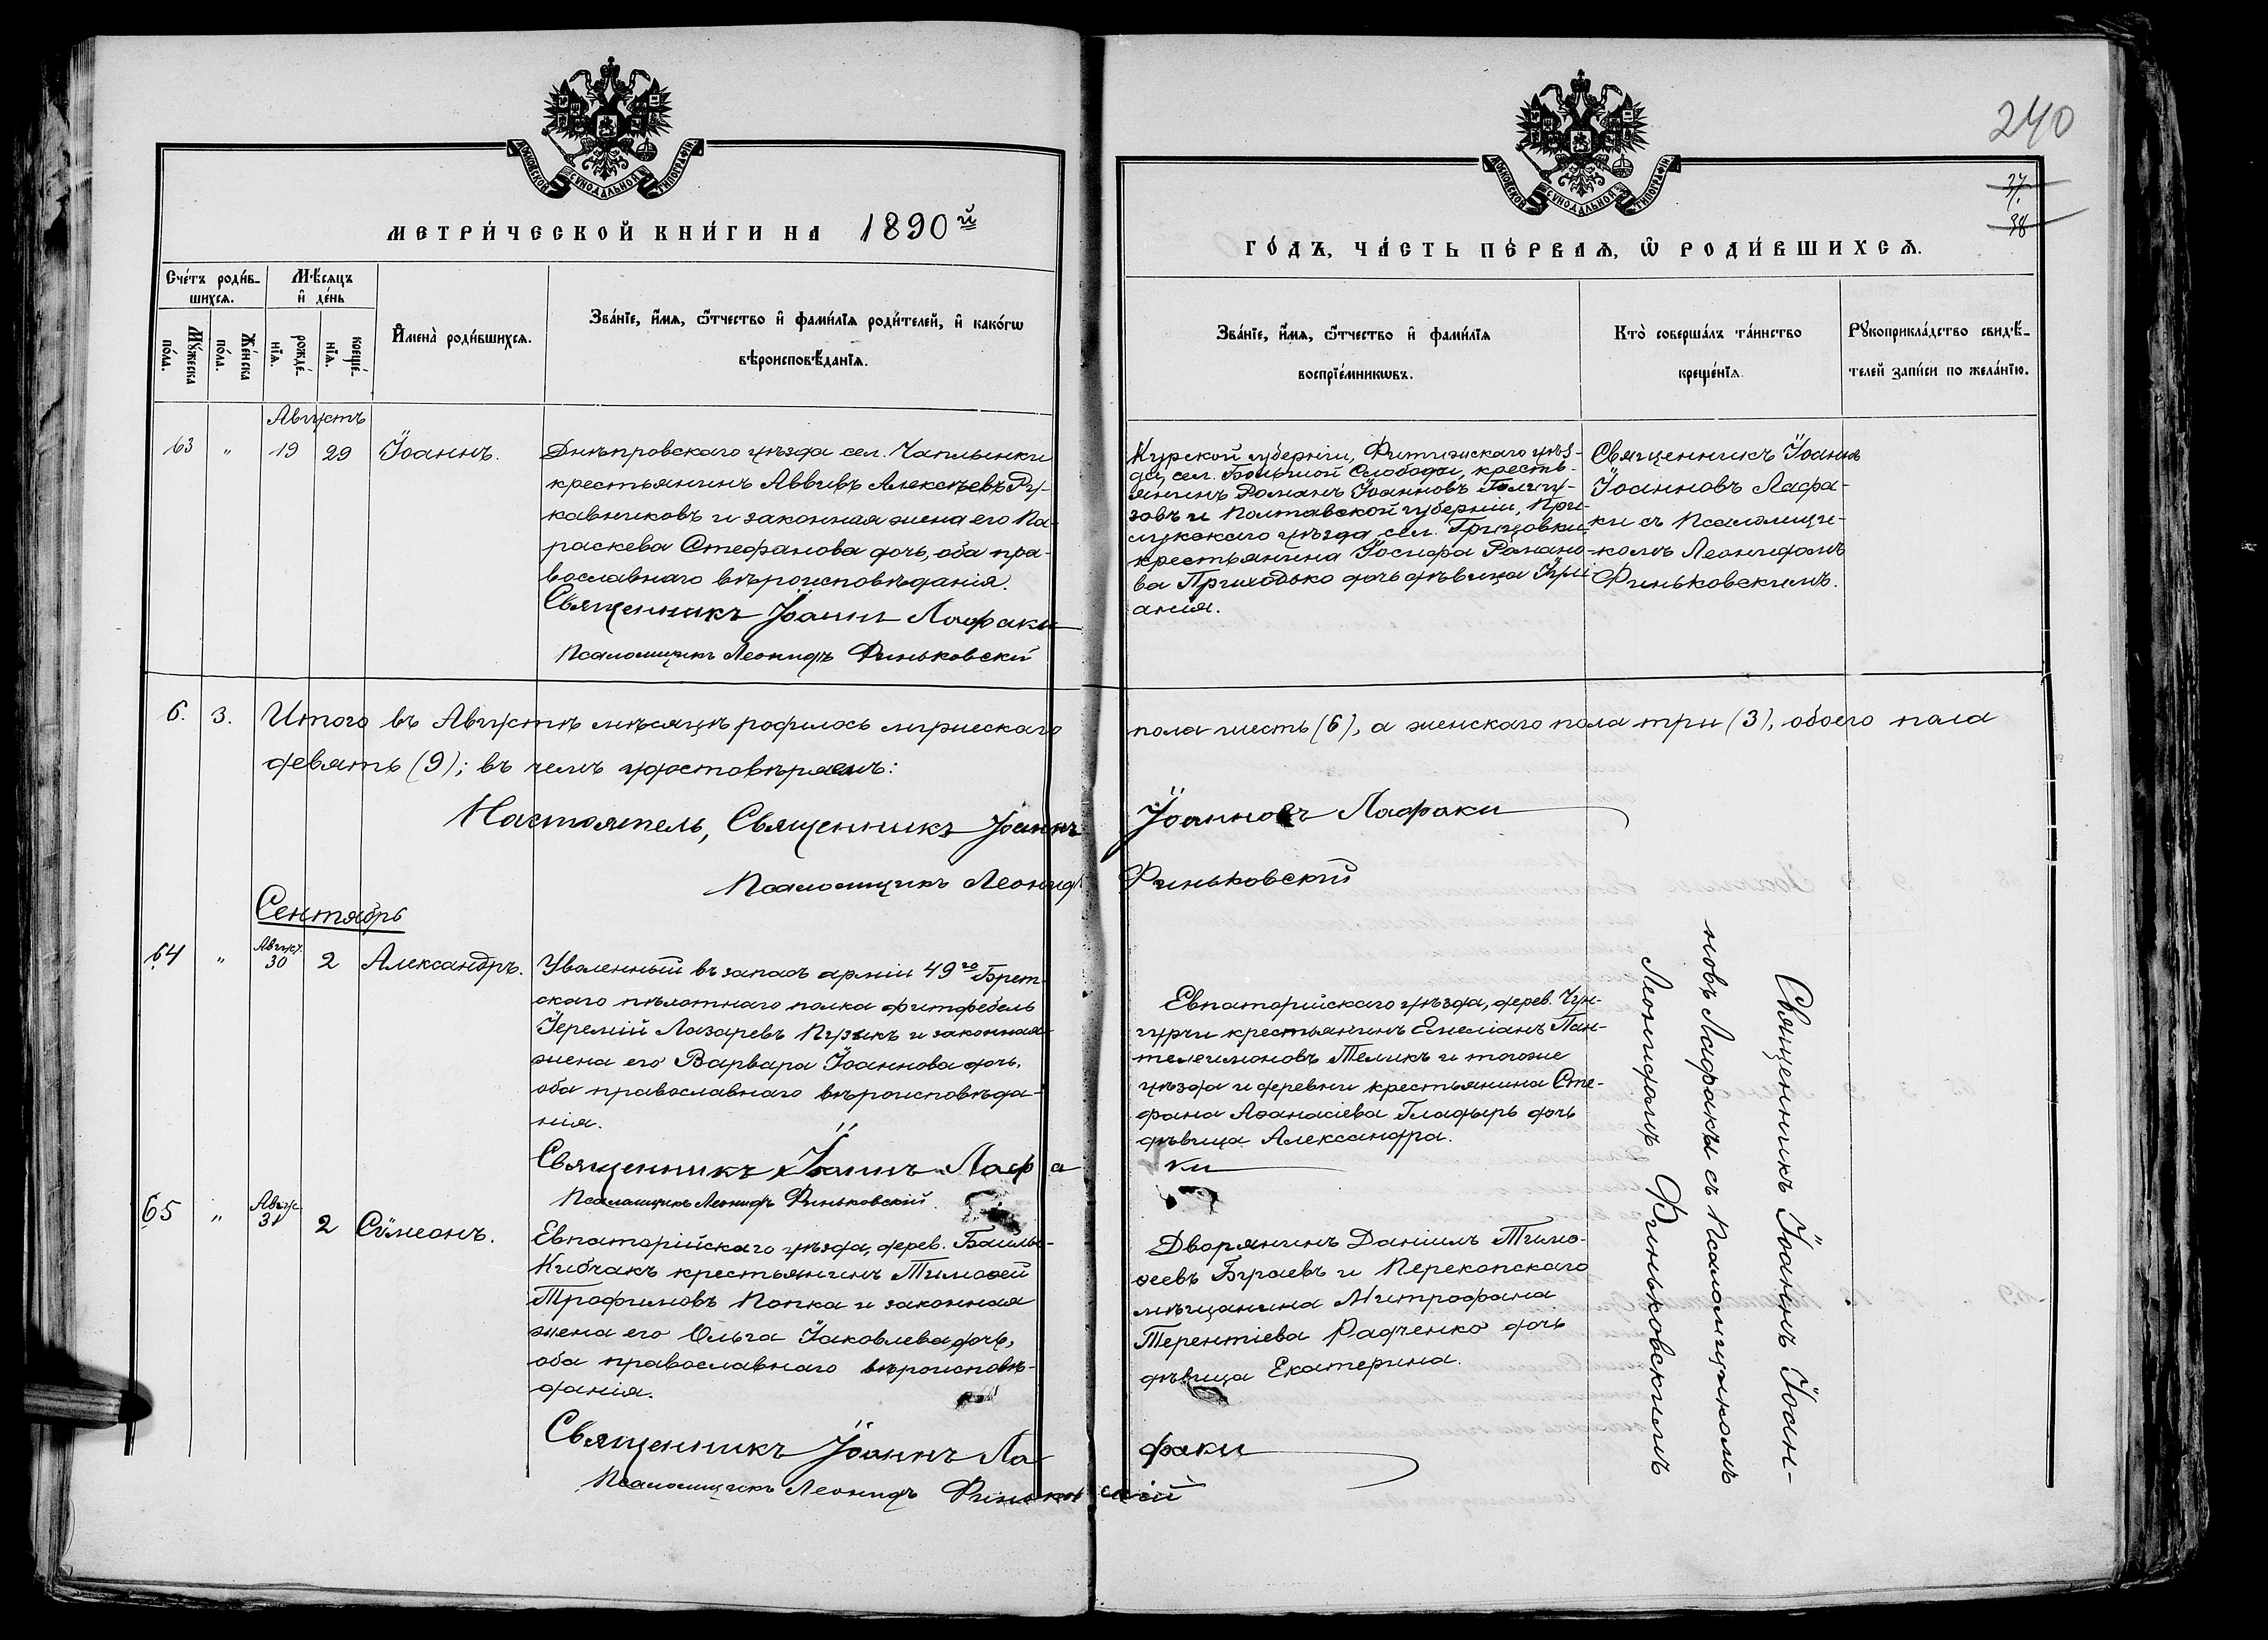 240
27
38
МОСКОВСКОЙ СѴНОДАЛЬНОЙ ТИПОГРАФІИ
МОСКОВСКОЙ СѴНОДАЛЬНОЙ ТИПОГРАФІИ
МЕТРИ́ЧЕСКОЙ КНИ́ГИ НА 1890й
ГО́ДЪ, ЧА́СТЬ ПЕ́РВАѦ, Ѡ РОДИ́ВШИХСѦ.
Сче́тъ роди́в-
шихсѧ.
Мꙋ́жеска
по́ла.
Же́нска
по́ла.
Мѣ́сѧцъ
и҆ де́нь
рожде́-
нїѧ.
креще́-
нїѧ.
И҆мена̀ роди́вшихсѧ.
Зва́нїе, и҆́мѧ, ѻ҆́тчество и҆ фами́лїѧ роди́телей, и҆ како́гѡ
вѣроисповѣ́данїѧ.
Зва́нїе, и҆́мѧ, ѻ҆́тчество и҆ фами́лїѧ
воспрїе́мникѡвъ.
Кто̀ соверша́лъ та́инство
креще́нїѧ.
Рꙋкоприкла́дство свидѣ́-
телей за́писи по жела́нїю.
Августъ
63 " 19 29 Іоаннъ.
Днѣпровскаго уѣзда сел. Чаплынки
крестьянинъ Аввивъ Алексѣевъ Ру-
кавниковъ и законная жена его Па-
раскева Стефанова дочь, оба пра-
вославнаго вѣроисповѣданія.
Священникъ Іоаннъ Лафаки
Псаломщикъ Леонидъ Финьковскій
Курской губерніи, Фитижскаго уѣз-
да, сел. Большой Слободы, кресть-
янинъ Романъ Іоанновъ
зовъ и Полтавской губерніи, При-
лукскаго уѣзда, сел. Грицовки
крестьянина Іосифа Романо-
ва Приходько дочь дѣвица Іулі-
анія.
Священникъ Іоаннъ
Іоанновъ Лафа-
ки съ Псаломщи-
комъ Леонидомъ
Финьковскимъ.
6. 3. Итого въ Августѣ мѣсяцѣ родилось мужескаго пола шесть (6), а женскаго пола три (3), обоего пола
девять (9); въ чемъ удостовѣряемъ:
Настоятель, Священникъ Іоаннъ Іоанновъ Лафаки
Псаломщикъ Леонидъ Финьковскій
Сентябрь
64 " Август. 30 2 Александръ.
Уволенный въ запасъ арміи 49го Брест-
скаго пѣхотнаго полка фитфебель
Іеремій Лазаревъ Пузикъ и законная
жена его Варвара Іоаннова дочь,
оба православнаго вѣроисповѣда-
нія.
Священникъ Іоаннъ Лафаки
Псаломщикъ Леонидъ Финьковскій.
Евпаторійскаго уѣзда, дерев. Чун-
гурчи крестьянинъ Емеліанъ Пан-
телеимоновъ Теликъ и тогоже
уѣзда и деревни крестьянина Сте-
фана Аѳанасіева Гладырь дочь
дѣвица Александра.
65 " Август. 31 2 Сѷмеонъ.
Евпаторійскаго уѣзда, дерев.
Кибчакъ крестьянинъ Тимоѳей
Трофимовъ Попка и законная
жена его Ольга Іаковлева дочь,
оба православнаго вѣроисповѣ-
данія.
Священникъ Іоаннъ Лафаки
Псаломщикъ Леонидъ Финьковскій
Дворянинъ Даніилъ Тимо-
ѳеевъ Бураевъ и Перекопскаго
мѣщанина Митрофана
Терентіева Радченко дочь
дѣвица Екатерина.
Священникъ Іоаннъ Іоан-
новъ Лафаки съ Псаломщикомъ
Леонидомъ Финьковскимъ